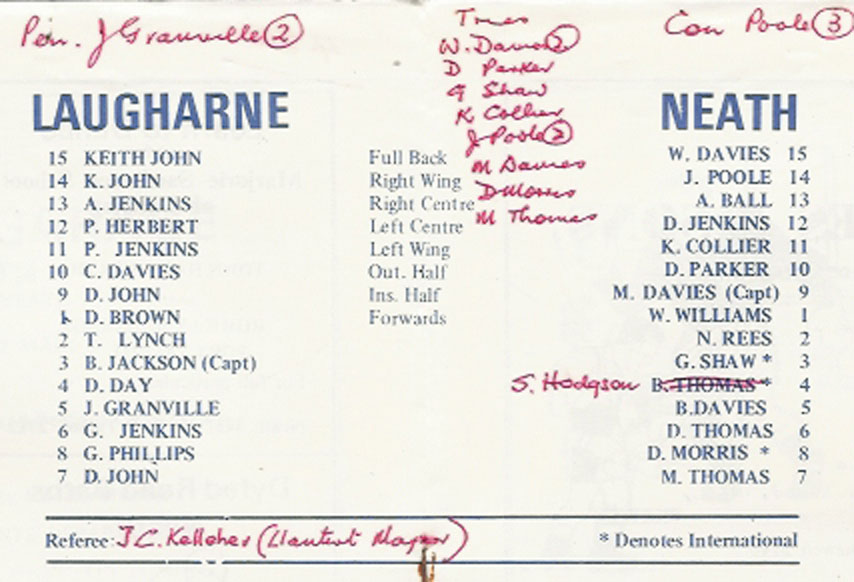 Pen. J Granville (2)
Tries
Con Poole (3)
W. Davies (2)
D Parker
G Shaw
K Collier
J Poole (2)
M Davies
D Morris
M Thomas
LAUGHARNE
NEATH
15 KEITH JOHN Full Back W. DAVIES 15
14 K. JOHN Right Wing J. POOLE 14
13 A. JENKINS Right Centre A. BALL 13
12 P. HERBERT Left Centre D. JENKINS 12
11 P. JENKINS Left Wing K. COLLIER 11
10 C. DAVIES Out. Half D. PARKER 10
9 D. JOHN Ins. Half M. DAVIES (Capt) 9
1 D. BROWN Forwards W. WILLIAMS 1
2 T. LYNCH N. REES 2
3 B. JACKSON (Capt) G. SHAW * 3
4 D. DAY S. Hodgson B. THOMAS * 4
5 J. GRANVILLE B.DAVIES 5
6 G. JENKINS D. THOMAS 6
8 G. PHILLIPS D. MORRIS * 8
7 D. JOHN M. THOMAS 7
Referee: J C. Kelleher (Llantwit Major) * Denotes International